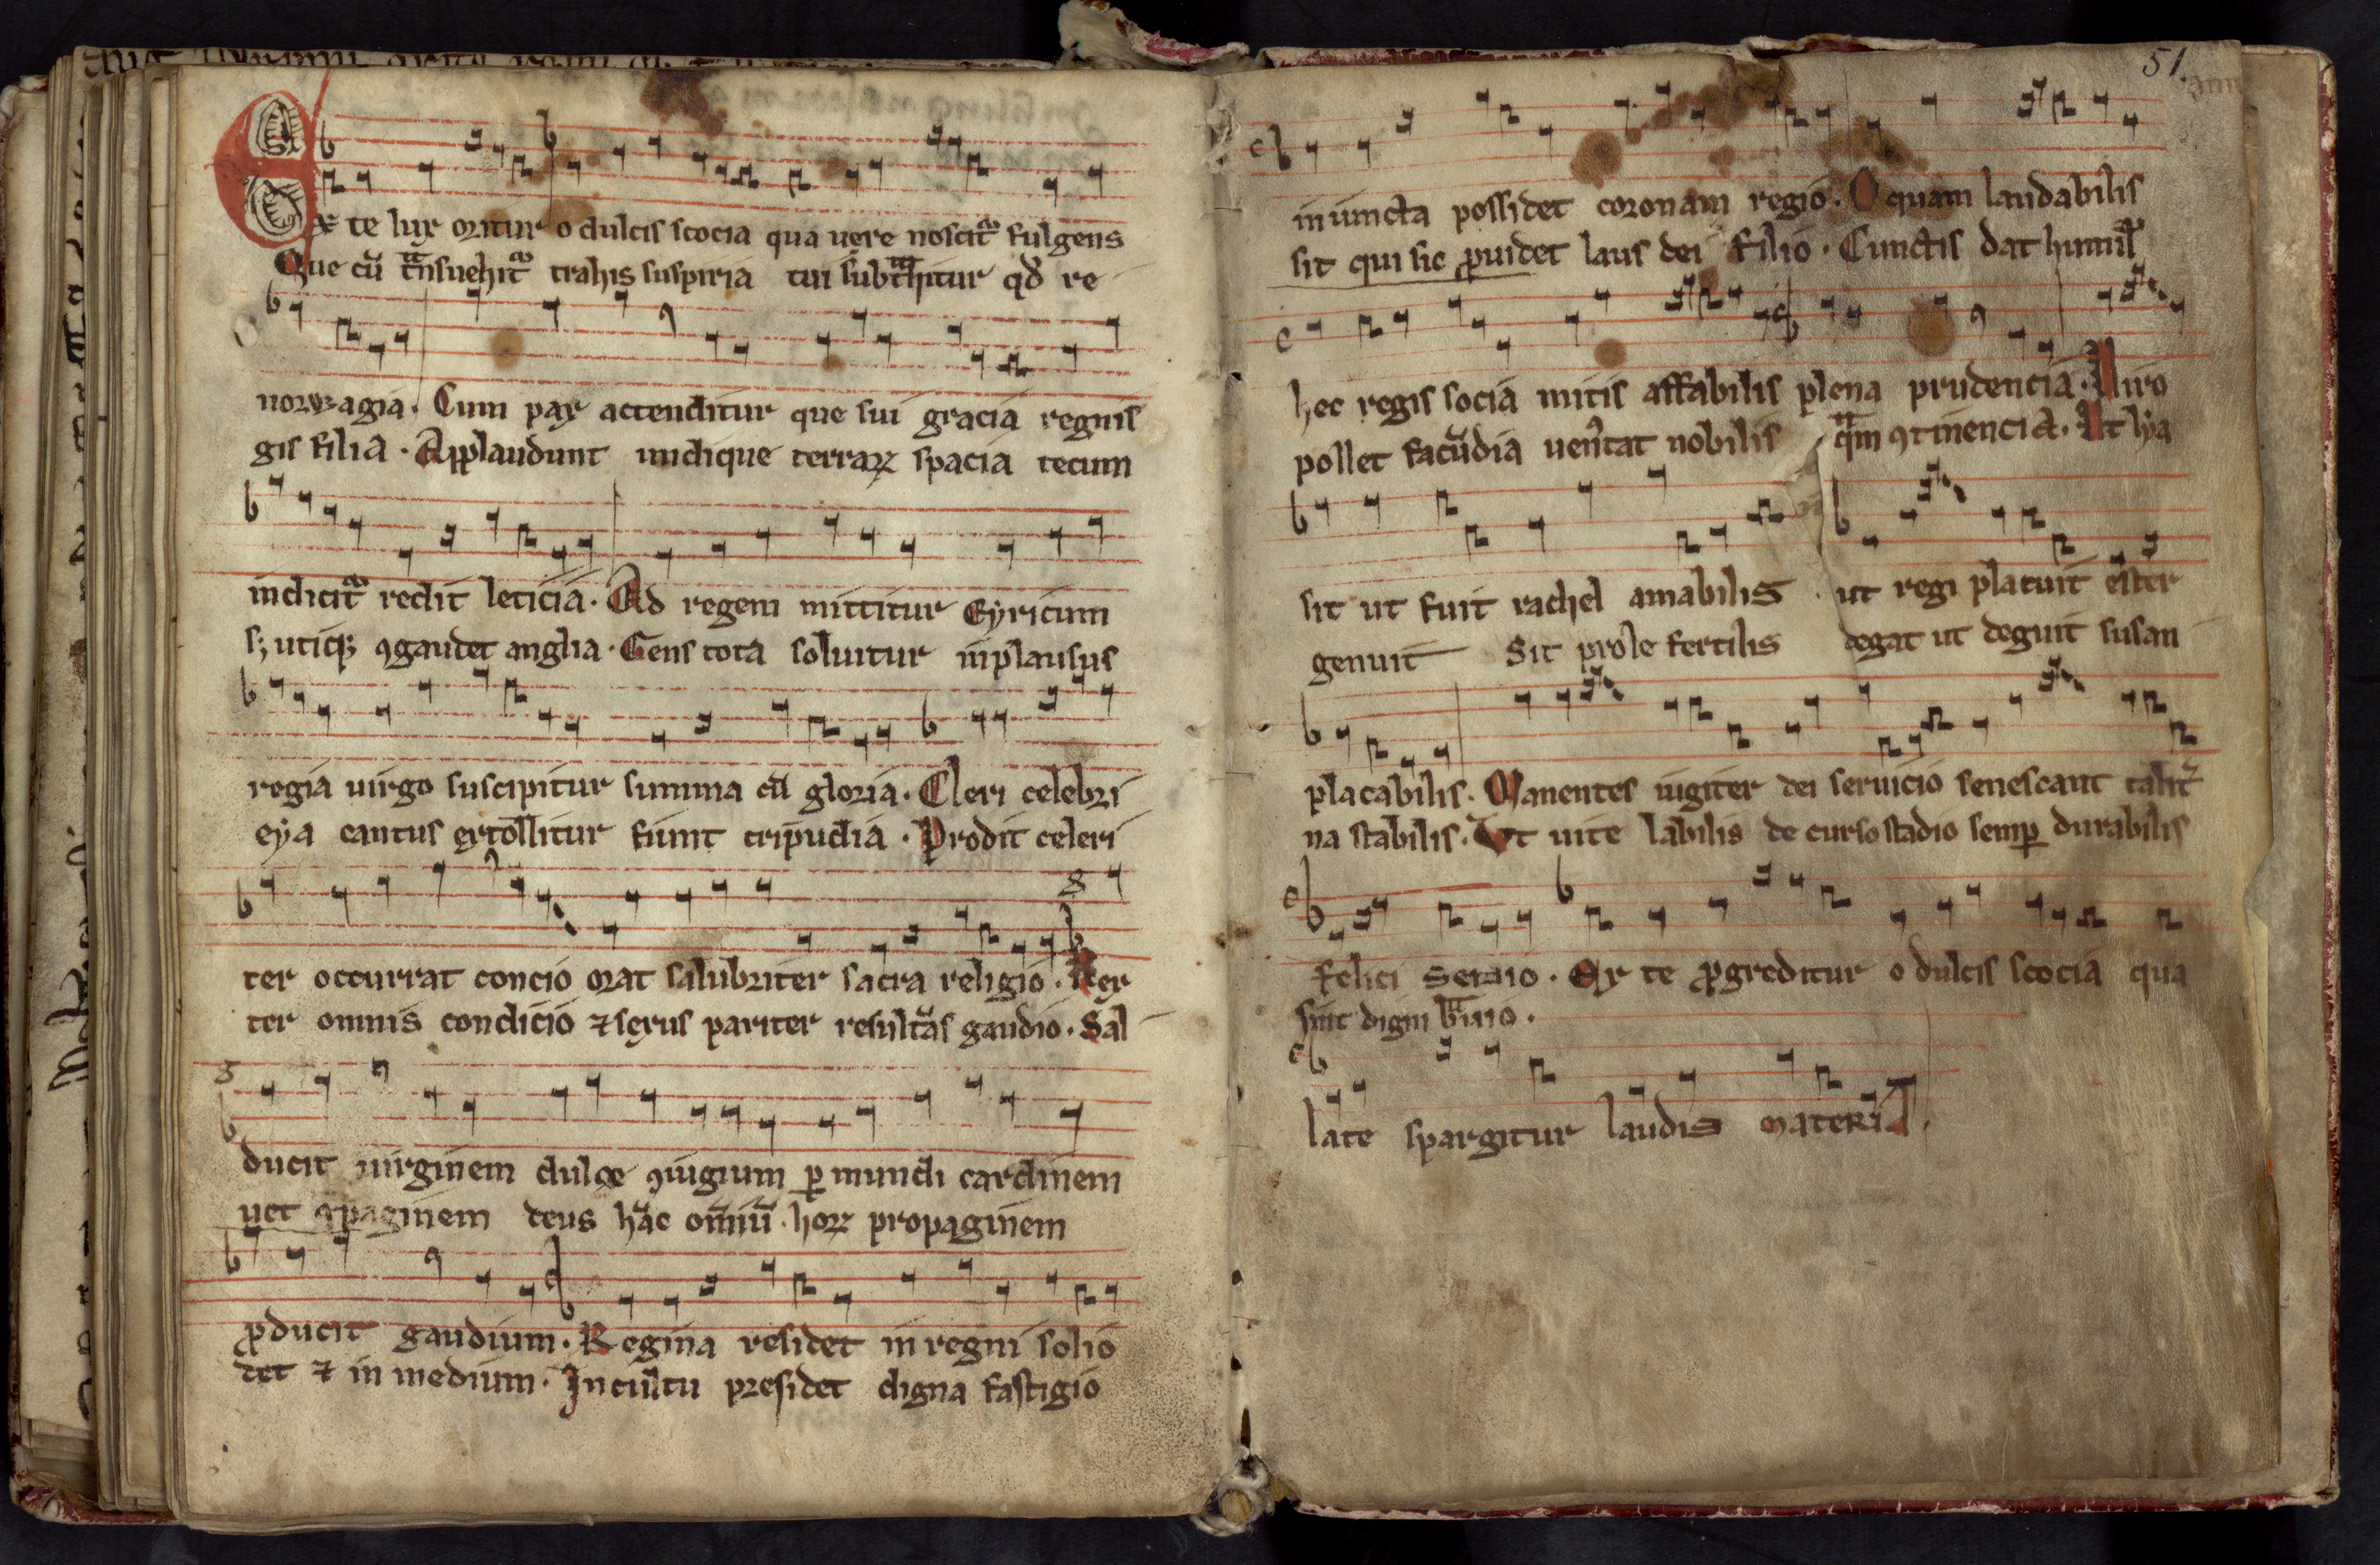 Ex te lux oritur o dulcis scocia qua uere noscitᷣ fulgens
Que cū tͣnsuehitᷣ trahis suspiria tui subtͣhitur qd̛ re
norwagia. Cum pax accenditur que sui gracia regnis
gis filia. Applaudunt undique terraꝝ spacia tecum
indicitᷣ redit leticia. Ad regem mittitur Eyricum
sꝫ utiqꝫ ꝯgaudet anglia. Gens tota soluitur in plausus
regia uirgo suscipitur summa cū gloria. Cleri celebri
eya cantus extollitur fiunt tripudia. Prodit celeri
ter occurrat concio orat salubriter sacra religio. Rex
ter omnis condicio ⁊ sexus pariter resultās gaudio. Sal
ducit uirginem dulce ꝯiugium ꝑ mundi cardinem
uet ꝯpaginem deus hāc omīū. hoꝝ propaginem
ꝓducit gaudium. Regina residet in regni solio
det ⁊ in medium. In cultu presidet digna fastigio
51.
iniuncta possidet coronam regio. O quam laudabilis
sit qui sic ꝓuidet laus dei filio. Cunctis dat humil̛
hec regis socia mitis affabilis plena prudencia. Uiro
pollet facūdia uen̛tat nobilis qͣm ꝯtinencia. At lya
sit ut fuit rachel amabilis ut regi placuit est̛er
genuit Sit prole fertilis degat ut deguit susan
placabilis. Manentes iugiter dei seruicio senescant talit̛
na stabilis. Ut uite labilis de curso stadio semꝑ durabilis
felici senio. Ex te ꝓgreditur o dulcis scocia qua
sint digni bͣuio.
late spargitur laudis materia.